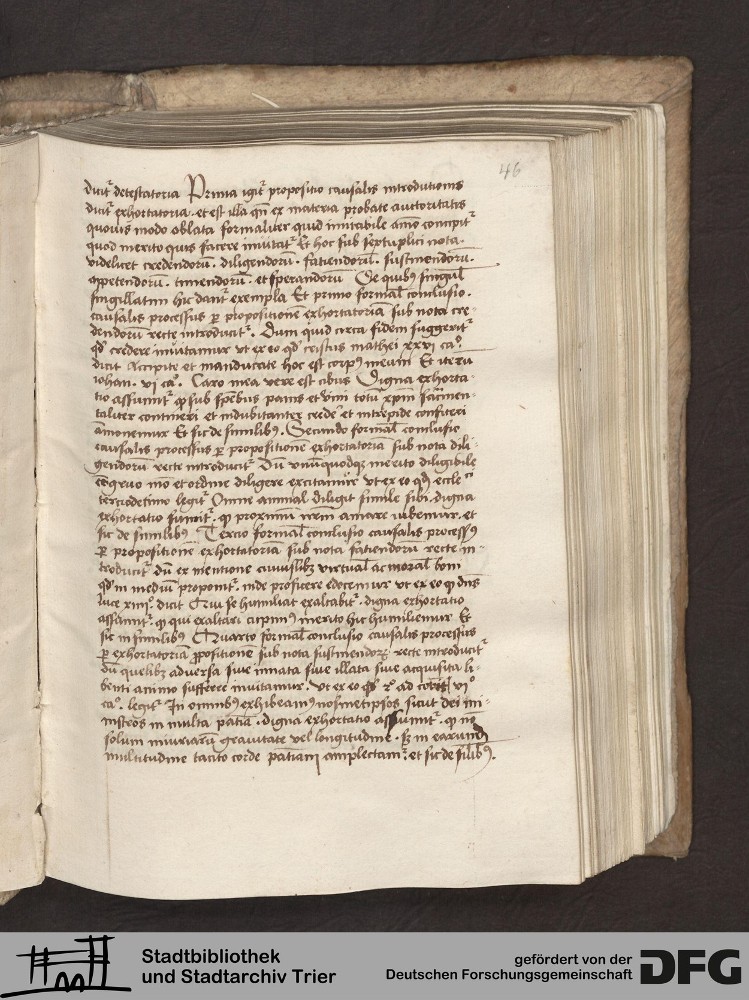 46
dicit᷑ detestatoria Prima igit᷑ propositio causalis introductionis
dicit᷑ exhortatoria. et est illa qn̄ ex materia probate auctoritatis
quovis modo oblata formaliter quid imitabile a͞mo concipit᷑
quod merito quis facere invitat᷑ Et hoc sub septuplici nota.
videlicet credendoru͞. diligendoru͞. faciendoru͞. sustinendoru͞.
appetendoru͞. timendoru͞. et sperandoru͞ De quibꝫ singul͞
singillatim hic dant᷑ exempla Et primo formal͞ conclusio.
causalis processus ꝑ propositione͞ exhortatoria͞ sub nota cre
dendoru͞ recte introducit᷑. Dum quid circa fidem suggerit᷑
qd͞ credere invitamur vt ex eo qd͞ cristus mathei xxvi ca°.
dicit Accipite et manducate hoc est corpꝰ meum Et iteru͞
iohan. vi ca°. Caro mea vere est cibus Digna exhorta
tio assumit᷑ ꝙ sub spe͞bus panis et vini totu͞ xp͞m sac͞men-
taliter contineri et indubitanter crede͞ et intrepide confiteri
a͞monemur Et sic de similibꝫ. Secundo formal͞ conclusio
causalis processus ꝑ propositione͞ exhortatoria͞ sub nota dili-
gendoru͞ recte introducit᷑ Du͞ unu͞quodqꝫ merito diligibile
co͞gruo mo͞ et ordine diligere excitamur vt ex eo qd͞ eccl͞e
terciodecimo legit᷑ Omne animal diligit simile sibi. digna
exhortatio sumit᷑. ꝙ proximu͞ nr͞m amare iubemur. et
sic de similibꝫ Tercio formal͞ conclusio causalis processꝰ
ꝑ propositione͞ exhortatoria͞ sub nota faciendoru͞ recte in-
troducit᷑ du͞ ex mentione cuiuslibꝫ virtual͞ ac moral͞ boni
qd͞ in mediu͞ proponit᷑. inde proficere edocemur vt ex eo ꝙ dn͞s
luce xiiij°. dicit Qui se humiliat exaltabit᷑. digna exhortatio
assumit᷑. ꝙ qui exaltari cupimꝰ merito hic humiliemur Et
sic in similibꝫ Quarto formal͞ conclusio causalis processus
ꝑ exhortatoria͞ ꝓpositione͞ sub nota sustinendoꝝ recte introducit᷑
du͞ quelibꝫ adversa sive innata sive illata sive acquisita li-
benti animo sufferre invitamur. vt ex eo qd͞ 2ª ad vi°
ca°. legit᷑ In omnibꝫ exhibeamꝰ nosmetipsos sicut dei mi-
nistros in multa patia͞. digna exhortatio assumit᷑. ꝙ no͞
solum iniuriaru͞ gravitate vel longitudine. sꝫ in earund͞
multitudine tacito corde patia͞m amplectam᷑. et sic de sil͞ibꝫ.
Stadtbibliothek
und Stadtarchiv Trier
gefördert von der
Deutschen Forschungsgemeinschaft
DFG